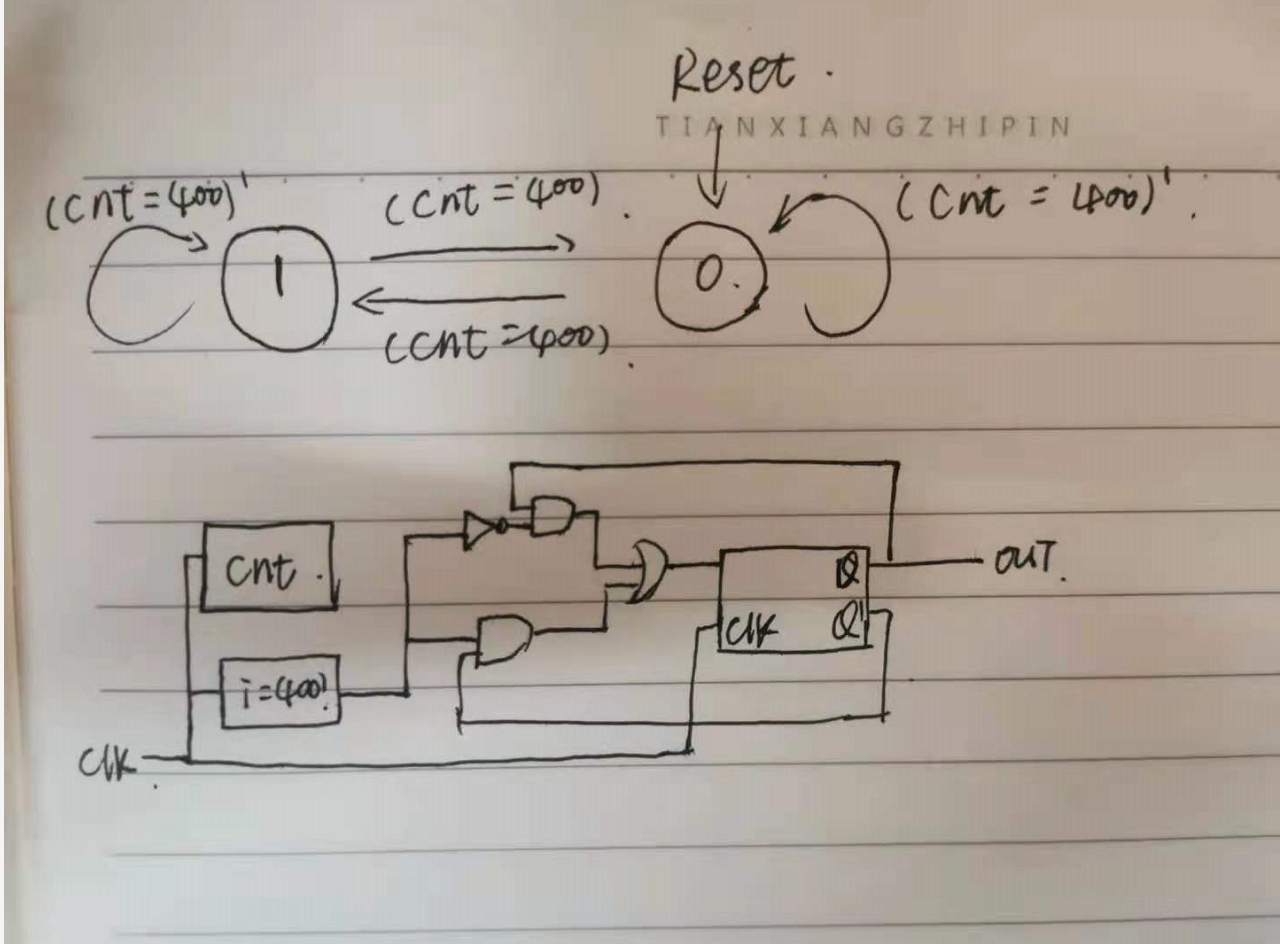 Reset.
TIANXIANGZHIPIN
(Cnt=400)' (Cnt=400). (Cnt=400)'.
1 0.
(Cnt=400).
Cnt.
Q OUT.
Clk Q'
i=400?
Clk.